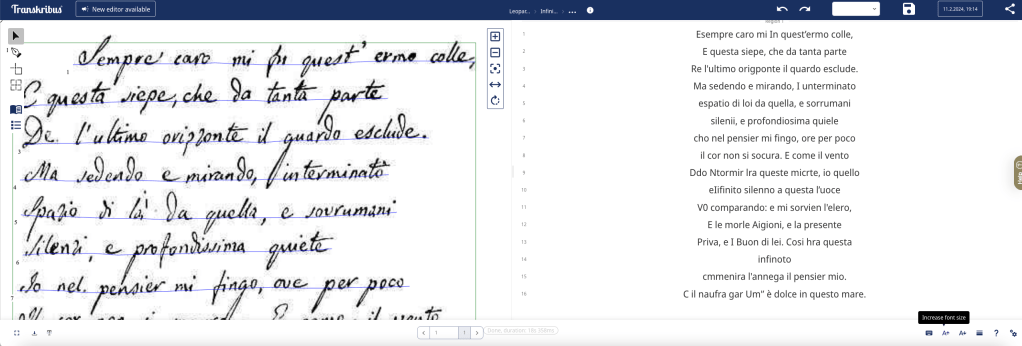 Transkribus
New editor available
Leopar... › Infini... › ...
11.2.2024, 19:14
Sempre caro mi fu quest' ermo colle,
E questa siepe, che da tanta parte
De l'ultimo orizzonte il guardo esclude.
Ma sedendo e mirando, l'interminato
Spazio di là da quella, e sovrumani
Silenzi, e profondissima quiete
Io nel pensier mi fingo, ove per poco
Il cor non si E come il vento
1
3
4
5
6
7
1 Esempre caro mi In quest'ermo colle,
2 E questa siepe, che da tanta parte
3 Re l'ultimo origponte il quardo esclude.
4 Ma sedendo e mirando, I unterminato
5 espatio di loi da quella, e sorrumani
6 silenii, e profondiosima quiele
7 cho nel pensier mi fingo, ore per poco
8 il cor non si socura. E come il vento
9 Ddo Ntormir lra queste micrte, io quello
10 elifinito silenno a questa l'uoce
11 V0 comparando: e mi sorvien l'elero,
12 E le morle Aigioni, e la presente
13 Priva, e I Buon di lei. Cosi hra questa
14 infinoto
15 cmmenira l'annega il pensier mio.
16 C il naufra gar Um" è dolce in questo mare.
Increase font size
1
Done, duration: 18s 358ms
A+ A+ ?